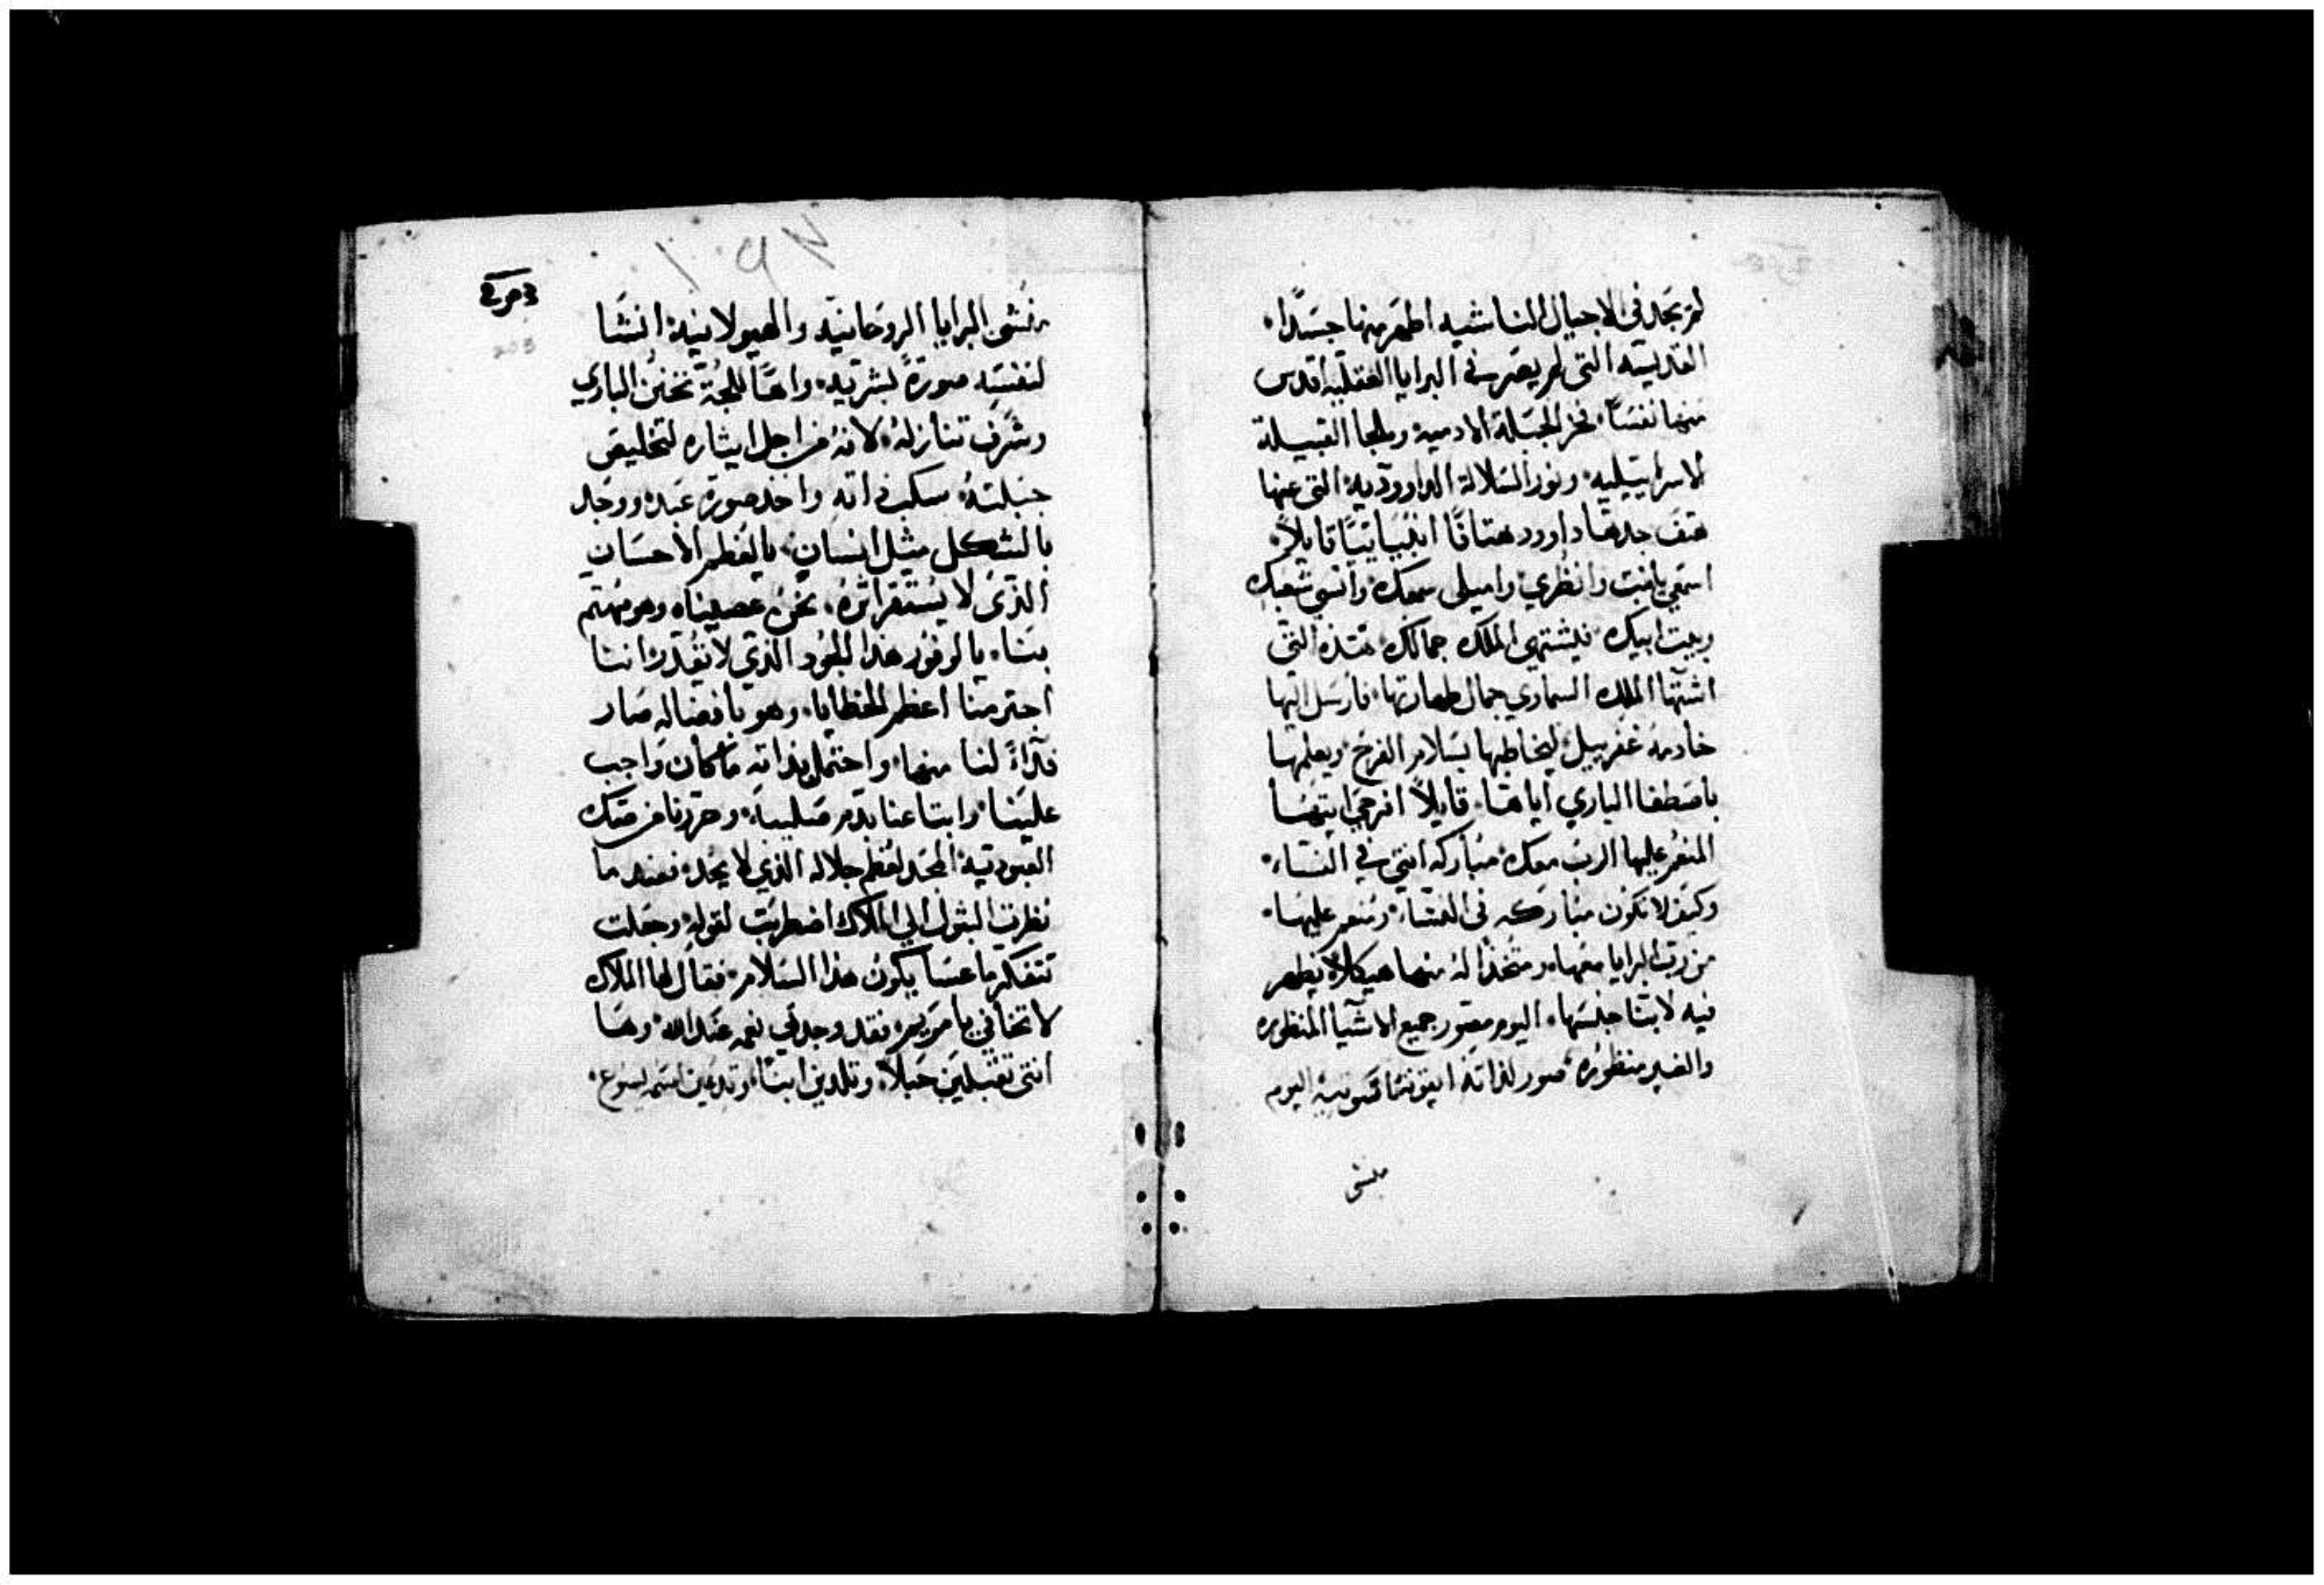 لم تجد في الاجيال الناشيه اطهر منها جسدًا.
القديسه التي لم يصر في البرايا العقليه اقدس
منها نفسًا. فخر الجبلة الادميه وملجا القبيلة
الاسراييليه. ونور السلالة الداووديه. التي عنها
هتف جدها داوود هتافًا انبيائيًا قايلاً.
اسمعي يابنت وانظري. واميلي سمعك. وانسي شعبك
وبيت ابيك. فيشتهي الملك جمالك. هذه التي
اشتها الملك السماوي جمال طهارتها. فارسل اليها
خادمه غفرييل. ليخاطبها بسلام الفرح. ويعلمها
باصطفا الباري اياها. قايلاً افرحي ايتها
المنعم عليها الرب معك. مباركه انتي في النساء.
وكيف لا تكون مباركه في النساء. ومنعم عليها.
من رب البرايا معها. ومتخذًا له منها هيكلاً يظهر
فيه لابنا جنسها. اليوم مصور جميع الاشيا المنظوره
والغير منظوره. صور لذاته ايقونتا اليوم
منشي
منشي البرايا الروحانيه والهيولانيه. انشا
لنفسه صورةً بشريه. واهًا للجة تحنن الباري
وشرف تنازله. لانه من اجل ايثاره لتخليص
جبلته. سكب ذاته واخد صورة عبد. ووجد
بالشكل مثل انسان. يالعظم الاحسان
الذي لا يستقر اثره. نحن عصيناه وهو مهتم
بنا. يا لوفور هذا الجود الذي لا يقدر. اننا
اجترمنا اعظم الخطايا. وهو بافضاله صار
فداءً لنا منها. واحتمل بذاته ما كان واجب
علينا. وابتاعنا بدم صليبه. وحررنا من صك
العبوديه. المجد لعظم جلاله الذي لا يحد. فعند ما
نظرت البتول الي الملاك اضطربت لقوله. وجعلت
تتفكر ما عسا يكون هذا السلام. فقال لها الملاك
لا تخافي يا مريم. فقد وجدتي نعمه عند الله. وها
انتي تقبلين حبلاً. وتلدين ابنًا. وتدعين اسمه يسوع.
203